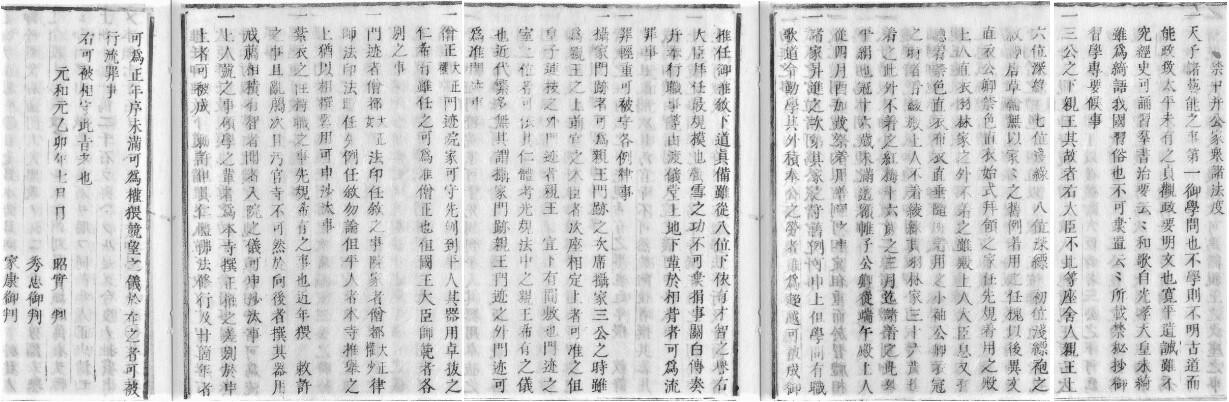 禁中并公家衆諸法度
一天子諸藝能之事第一御學問也不學則不明古道而
能政致太平未有之貞觀政要明文也寛平遺誡雖不
究經史可誦習羣書治要云々和歌自光孝天皇未絶
雖爲綺語我國習俗也不可棄置云々所載禁秘抄御
習學專要候事
一三公之下親王其故者右大臣不比等座舍人親王上
六位深緑 七位淺緑 八位深縹 初位淺縹袍之
直衣公卿禁色直衣始或拜領之家任先規着用之殿
上人直衣羽林家之外不着之雖殿上人大臣息又
着之此外不着之紅梅十六歳之三月迄諸家着之此
從四月酉加茂祭
諸家昇進之次第其家々守舊例可申上但學問有職
歌道令勤學其外積奉公之勞者雖爲超越可被成御
推任御推敍下道眞備雖從八位下依有才智之譽右
大臣拜任最規模也螢雪之功不可棄捐事關白傳奏
并奉行職事等申渡儀堂上地下輩於相背者可爲流
罪事
一罪輕重可被守各例律事
一攝家門跡者可爲親王門跡之次席攝家三公之時雖
爲親王之上前官之大臣者次座相定上者可准之但
皇子連枝之外門跡者親王 宣下有間敷也門跡之
室之位者可依其仁體考先規法中之親王希有之儀
也近代繁多無其謂攝家門跡親王門跡之外門跡可
爲准門跡事
一僧正大正門跡院家可守先例到平人其器用卓拔之
仁希有雖任之可爲准僧正也但國王大臣師範者各
別之事
一門跡者僧都大正法印任敍之事院家者僧都大正律
師法印法眼任先例任敍勿論但平人者本寺推擧之
上猶以相撰器用可申沙汰事
一紫衣之住持職之事先規希有之事也近年猥 敕許
之事且亂臈次且汚官寺不可然於向後者撰其器用
戒臈相積有智者聞者入院之儀可申沙汰事
一上人號之事碩學之輩者爲本寺撰正權之差別於申
上者可被成 敕許但其仁體佛法修行及廿箇年者
可爲正年序未滿可爲權猥競望之儀於在之者可被
行流罪事
右可被相守此旨者也
元和元乙卯年七月日
昭實判
秀忠御判
家康御判